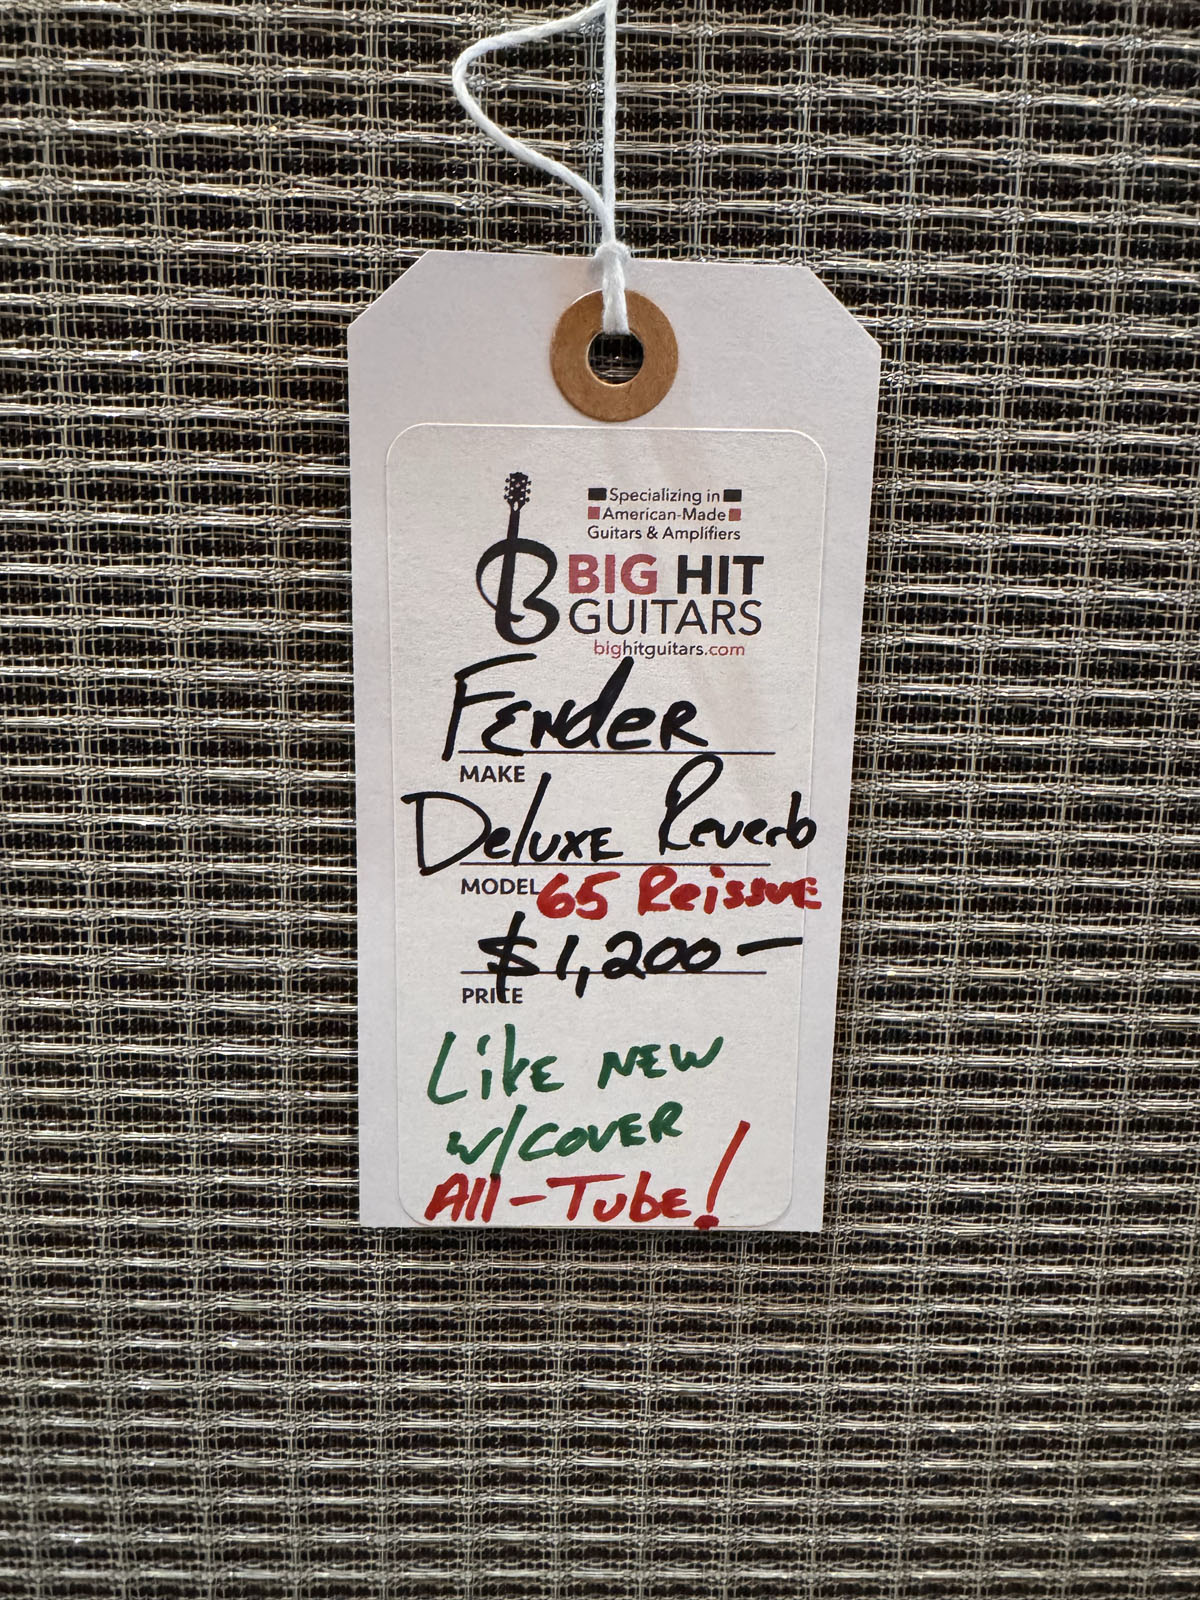 Specializing in
American-Made
Guitars & Amplifiers
BIG HIT
GUITARS
bighitguitars.com
Fender
MAKE
Deluxe Reverb
MODEL 65 Reissue
$1,200-
PRICE
Like NEW
w/COVER
All-Tube!